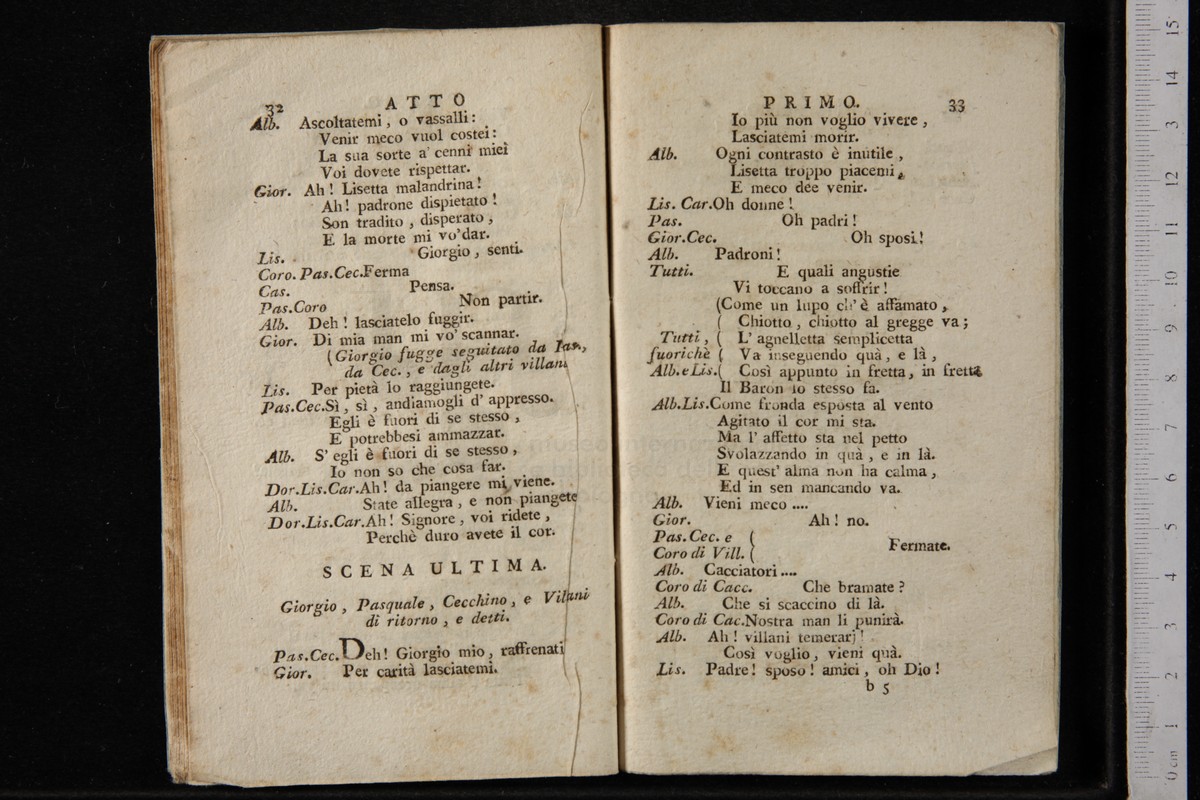 32
ATTO
Alb. Ascoltatemi, o vassalli:
Venir meco vuol costei:
La sua sorte a' cenni miei
Voi dovete rispettar.
Gior. Ah! Lisetta malandrina!
Ah! padrone dispietato!
Son tradito, disperato,
E la morte mi vo' dar.
Lis. Giorgio, senti.
Coro. Pas. Cec. Ferma
Cas. Pensa.
Pas. Coro Non partir.
Alb. Deh! lasciatelo fuggir.
Gior. Di mia man mi vo' scannar.
(Giorgio fugge seguitato da Pas.,
da Cec., e dagli altri villani
Lis. Per pietà lo raggiungete.
Pas. Cec. Sì, sì, andiamogli d' appresso.
Egli è fuori di se stesso,
E potrebbesi ammazzar.
Alb. S' egli è fuori di se stesso,
Io non so che cosa far.
Dor. Lis. Car. Ah! da piangere mi viene.
Alb. State allegra, e non piangete
Dor. Lis. Car. Ah! Signore, voi ridete,
Perchè duro avete il cor.
SCENA ULTIMA.
Giorgio, Pasquale, Cecchino, e Villani
di ritorno, e detti.
Pas. Cec. Deh! Giorgio mio, raffrenati
Gior. Per carità lasciatemi.
PRIMO.
33
Io più non voglio vivere,
Lasciatemi morir.
Alb. Ogni contrasto è inutile,
Lisetta troppo piacemi,
E meco dee venir.
Lis. Car. Oh donne!
Pas. Oh padri!
Gior. Cec. Oh sposi!
Alb. Padroni!
Tutti. E quali angustie
Vi toccano a soffrir!
(Come un lupo ch' è affamato,
( Chiotto, chiotto al gregge va;
Tutti, ( L' agnelletta semplicetta
fuorichè ( Va inseguendo quà, e là,
Alb. e Lis. ( Così appunto in fretta, in fretta
Il Baron lo stesso fa.
Alb. Lis. Come fronda esposta al vento
Agitato il cor mi sta.
Ma l' affetto sta nel petto
Svolazzando in quà, e in là.
E quest' alma non ha calma,
Ed in sen mancando va.
Alb. Vieni meco ....
Gior. Ah! no.
Pas. Cec. e (
Coro di Vill. ( Fermate.
Alb. Cacciatori ....
Coro di Cacc. Che bramate?
Alb. Che si scaccino di là.
Coro di Cac. Nostra man li punirà.
Alb. Ah! villani temerarj!
Così voglio, vieni quà.
Lis. Padre! sposo! amici, oh Dio!
b 5